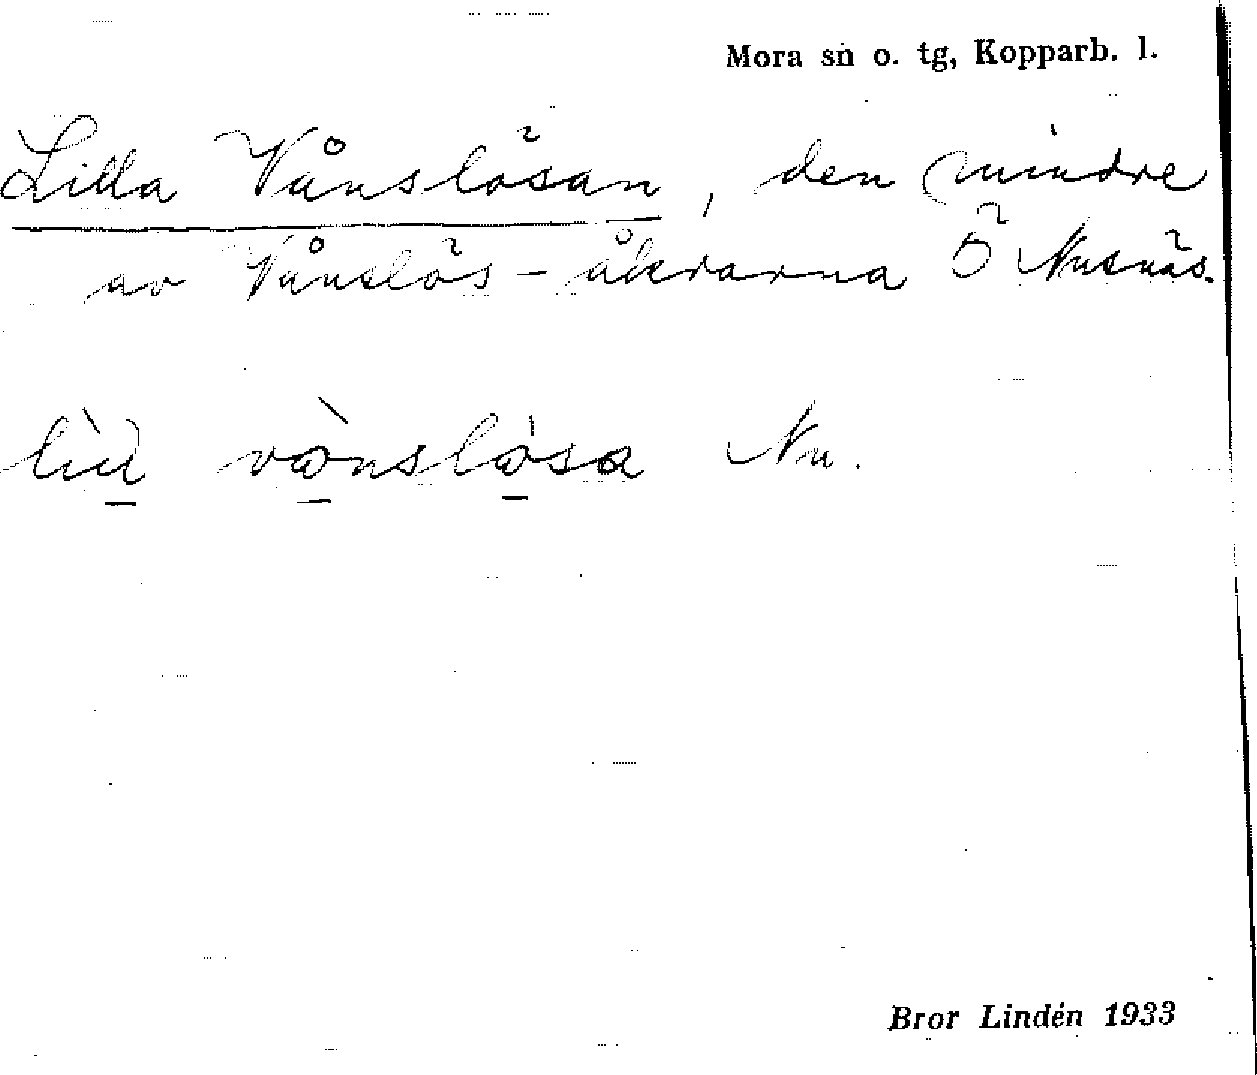 Mora sn o. tg, Kopparb. l.
Lilla Vånslösan, den mindre
av Vånslös-åkrarna Ö Nusnäs.
Nu.
Bror Lindén 1933